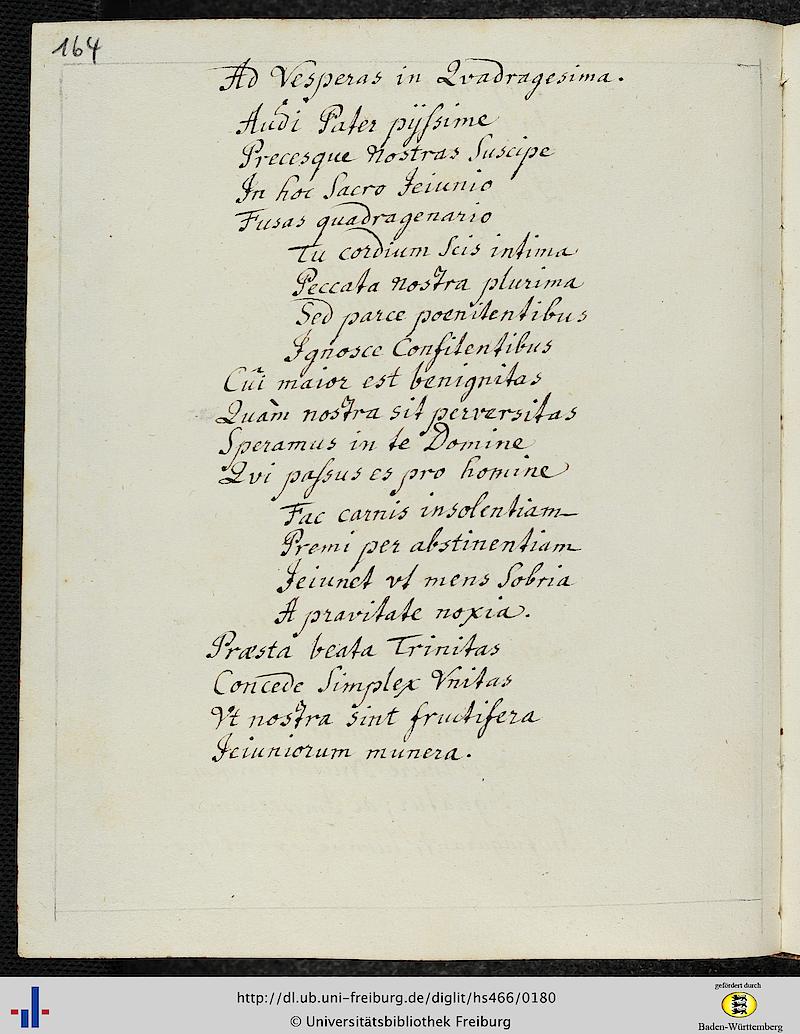 164
Ad Vesperas in Qvadragesima.
Audi Pater pijſsime
Precesque nostras Suscipe
In hoc Sacro Ieiunio
Fusas quadragenario
Tu cordium Scis intima
Peccata nostra plurima
Sed parce poenitentibus
Ignosce Confitentibus
Cui maior est benignitas
Quàm nostra sit perversitas
Speramus in te Domine
Qvi paſsus es pro homine
Fac carnis insolentiam
Premi per abstinentiam
Ieiunet vt mens Sobria
A pravitate noxia.
Præsta beata Trinitas
Concede Simplex Vnitas
Vt nostra sint fructifera
Ieiuniorum munera.
http://dl.ub.uni-freiburg.de/diglit/hs466/0180
© Universitätsbibliothek Freiburg
gefördert durch
Baden-Württemberg